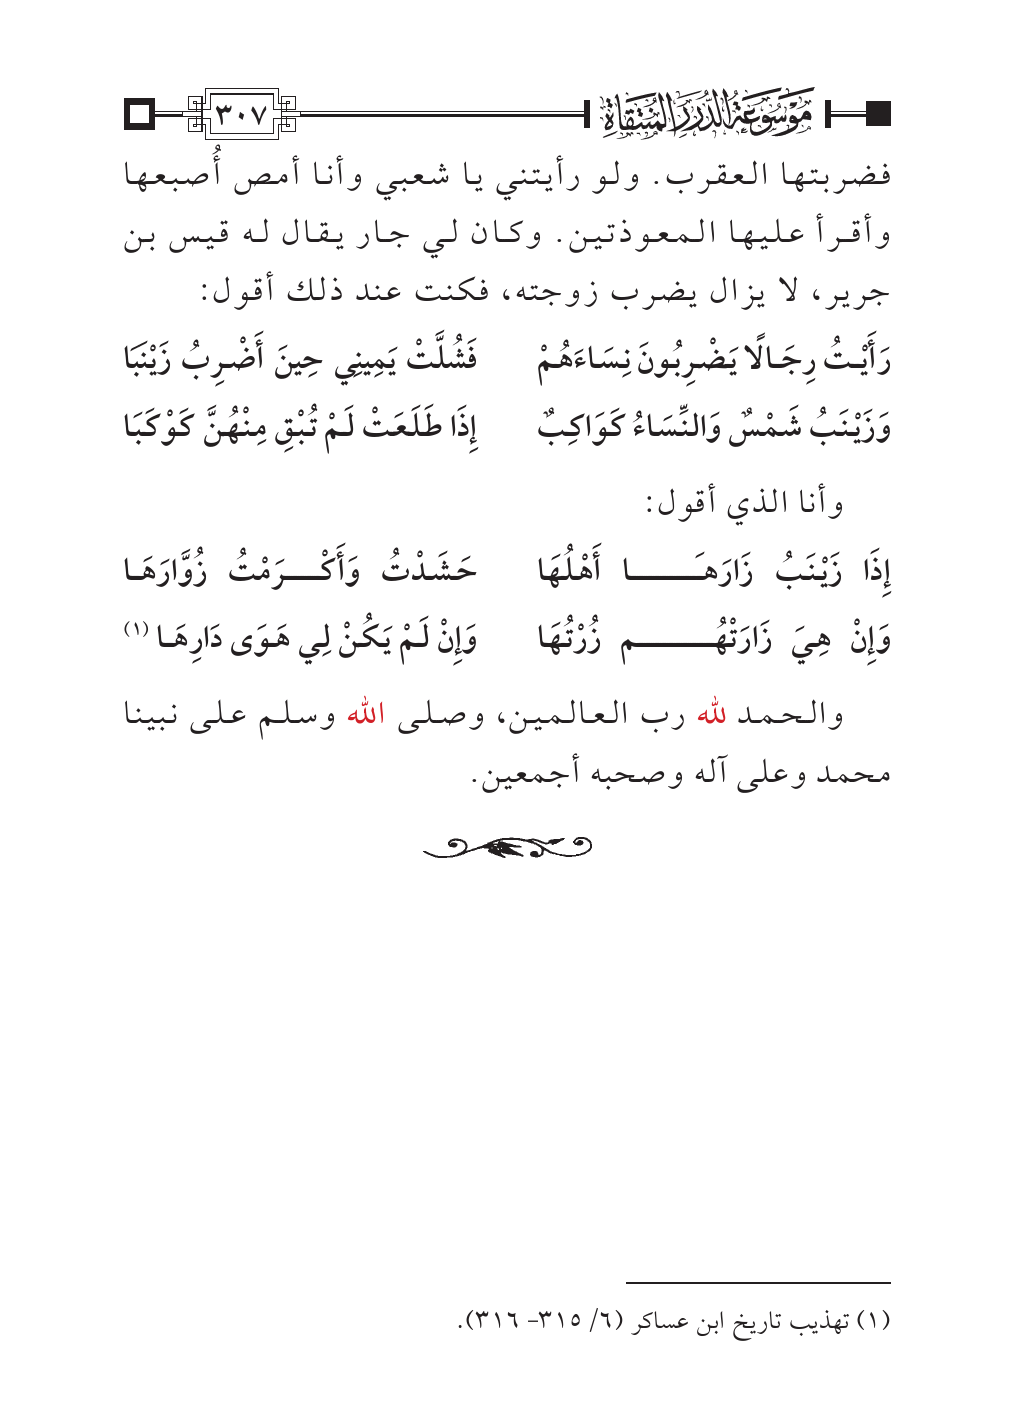 موسوعة الدرر المنتقاة ٣٠٧
فضربتها العقرب. ولو رأيتني يا شعبي وأنا أمص أُصبعها
وأقرأ عليها المعوذتين. وكان لي جار يقال له قيس بن
جرير، لا يزال يضرب زوجته، فكنت عند ذلك أقول:
رَأَيْتُ رِجَالًا يَضْرِبُونَ نِسَاءَهُمْ فَشُلَّتْ يَمِينِي حِينَ أَضْرِبُ زَيْنَبَا
وَزَيْنَبُ شَمْسٌ وَالنِّسَاءُ كَوَاكِبٌ إِذَا طَلَعَتْ لَمْ تُبْقِ مِنْهُنَّ كَوْكَبَا
وأنا الذي أقول:
إِذَا زَيْنَبُ زَارَهَـــــا أَهْلُهَا حَشَدْتُ وَأَكْـــرَمْتُ زُوَّارَهَا
وَإِنْ هِيَ زَارَتْهُـــــم زُرْتُهَا وَإِنْ لَمْ يَكُنْ لِي هَوَى دَارِهَا (١)
والحمد لله رب العالمين، وصلى الله وسلم على نبينا
محمد وعلى آله وصحبه أجمعين.
(١) تهذيب تاريخ ابن عساكر (٦/ ٣١٥- ٣١٦).